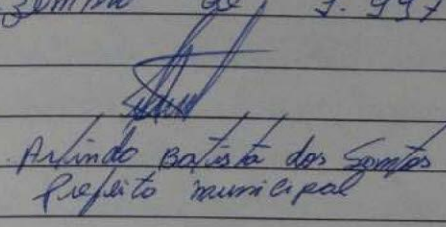 de 1.997
Arlindo Batista dos Santos
Prefeito municipal